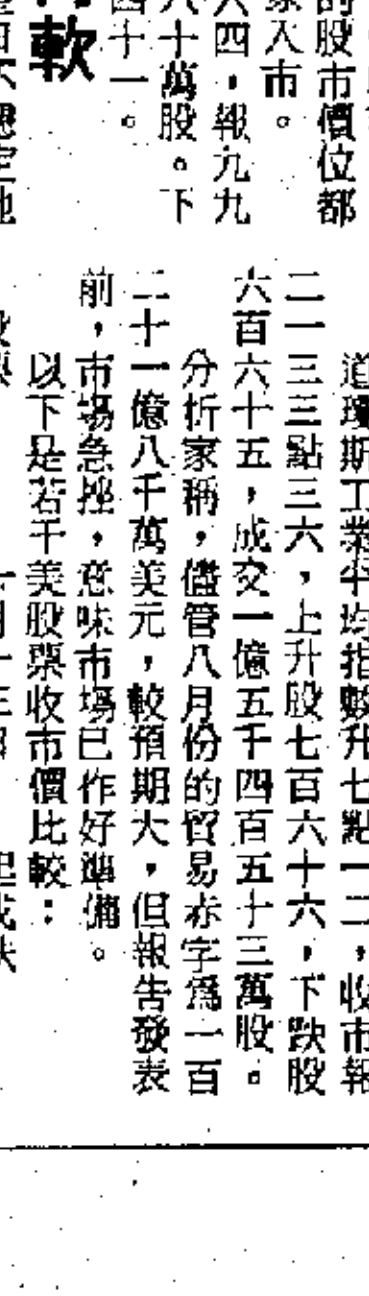 的股市價位都
家入市。
六四，報九九
八十萬股。下
四十一。
軟
道瓊斯工業平均指數升七點一二，收市報
二一三三點三六，上升股七百六十六，下跌股
六百六十五，成交一億五千四百五十三萬股。
分析家稱，儘管八月份的貿易赤字爲一百
二十一億八千萬美元，較預期大，但報告發表
前，市場急挫，意味市場已作好準備。
以下是若干美股票收市價比較：